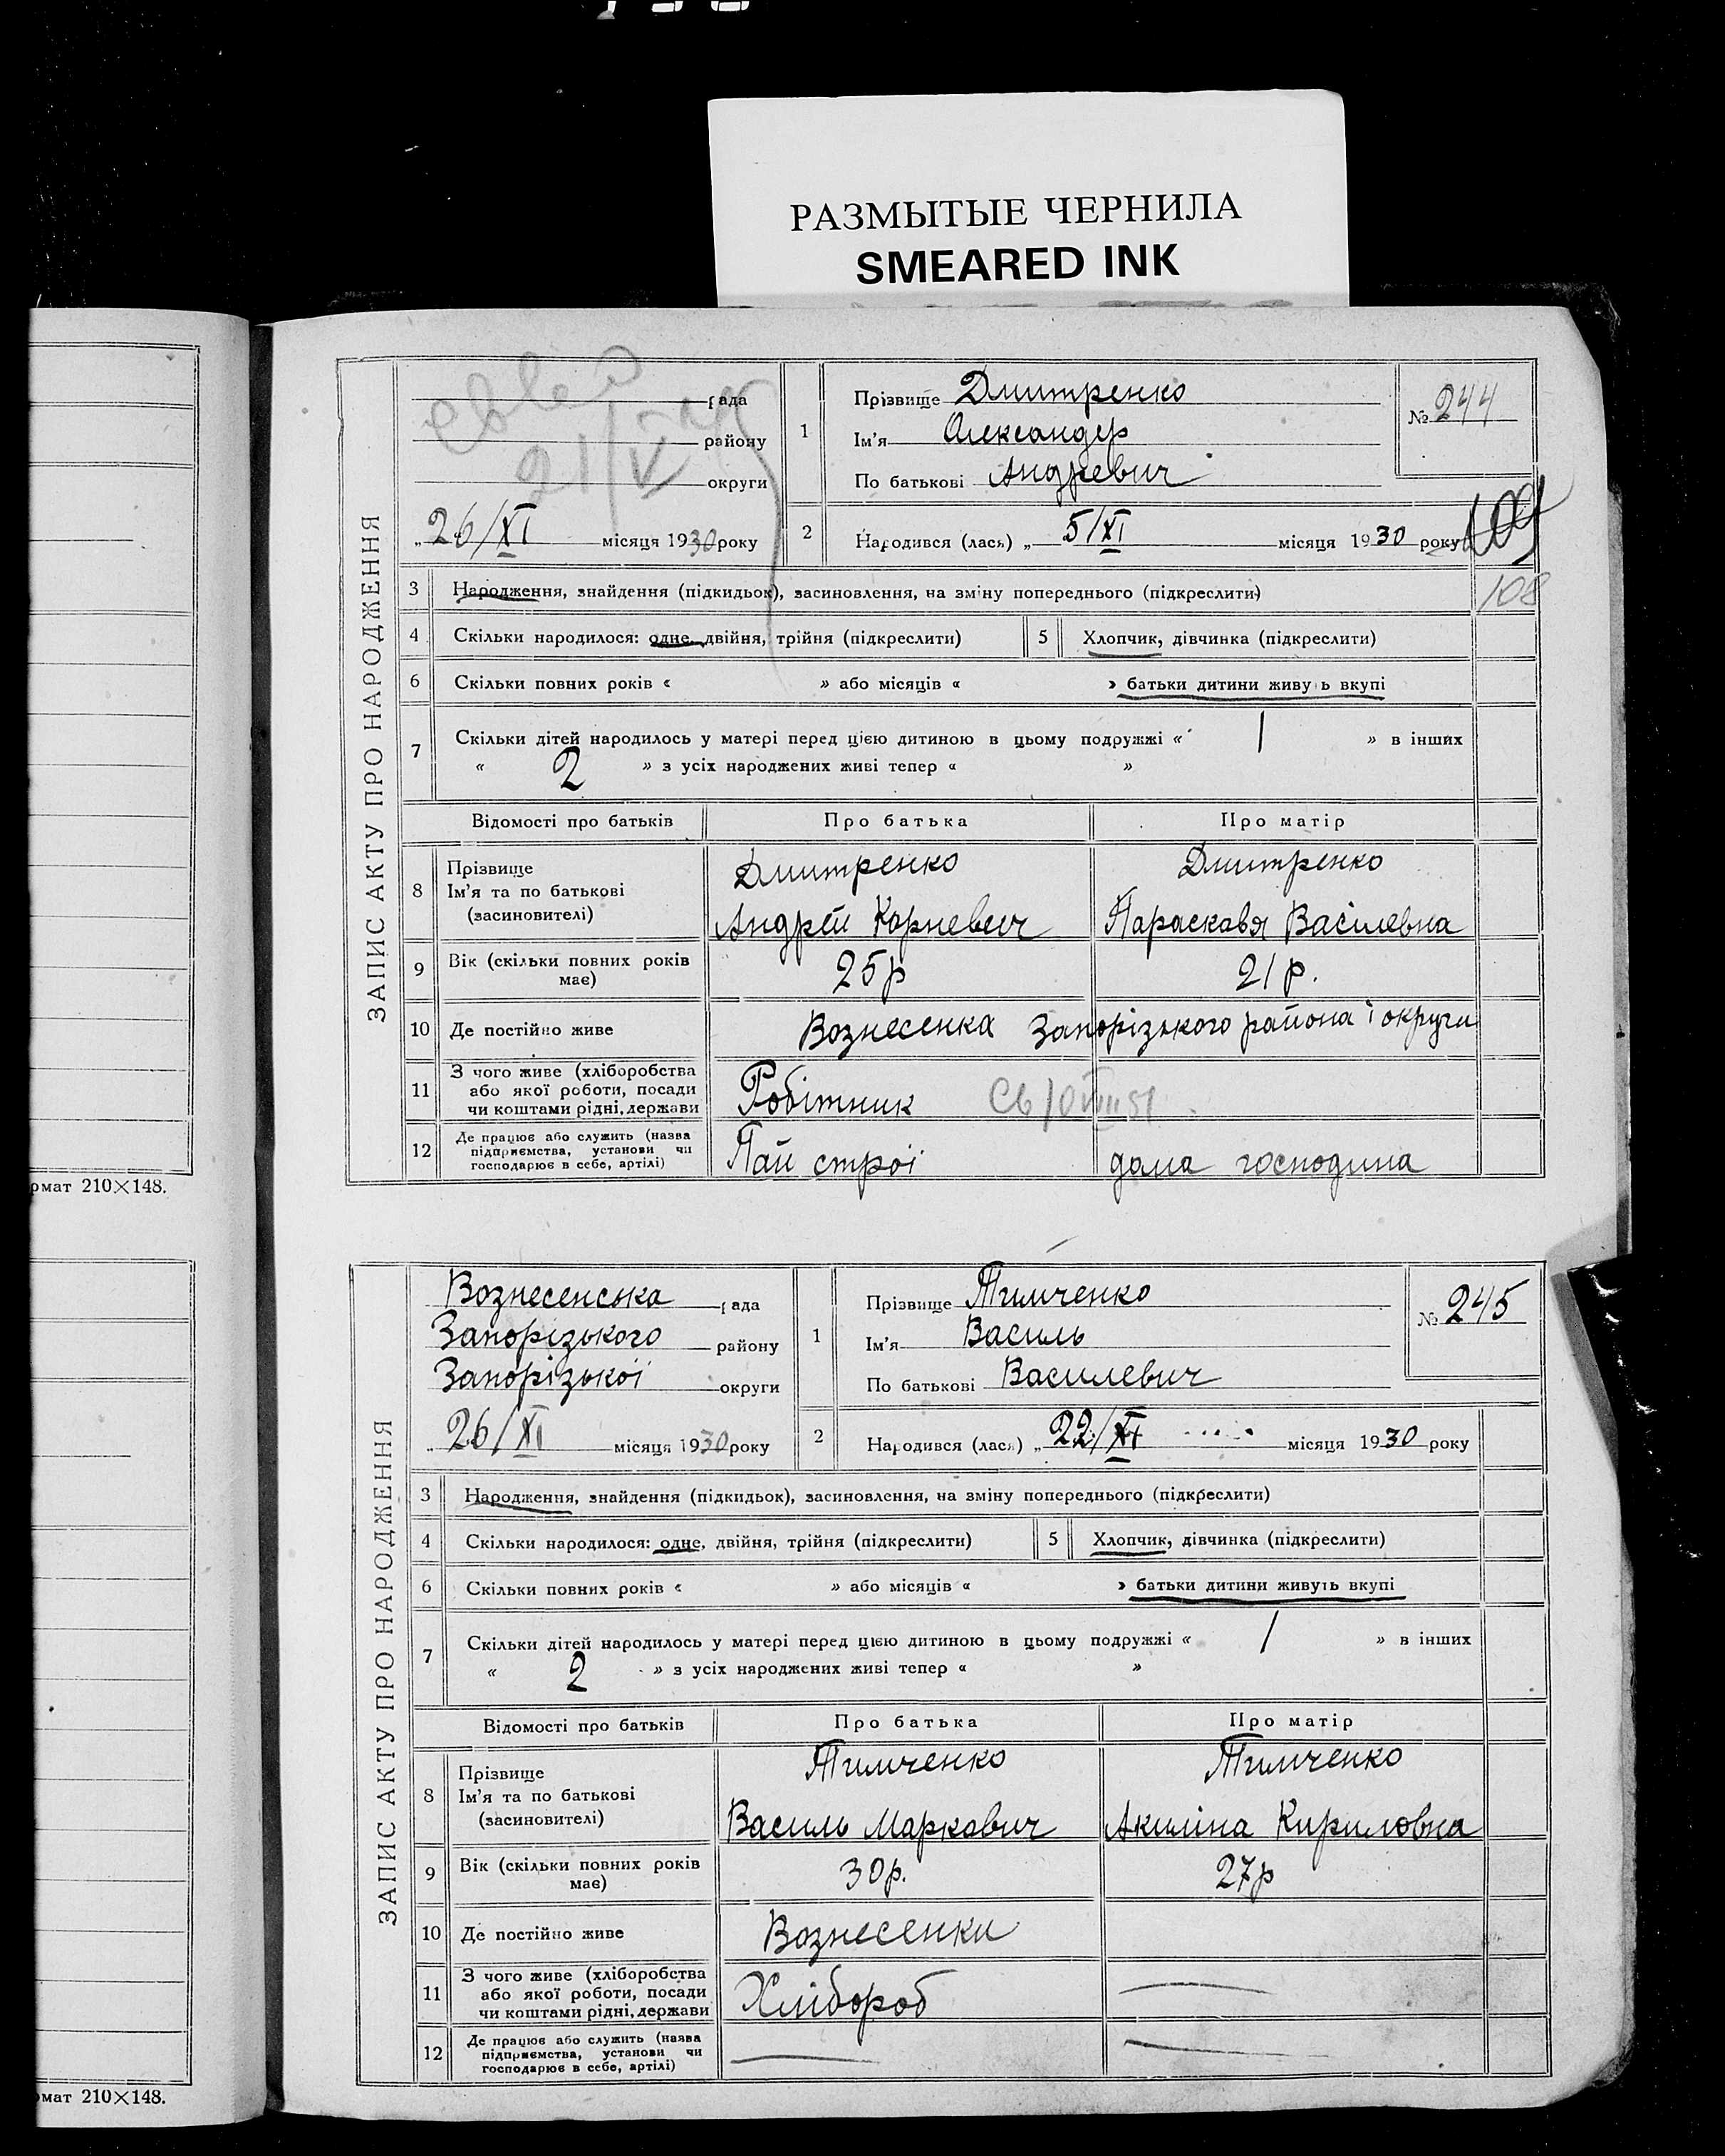 РАЗМЫТЫЕ ЧЕРНИЛА
SMEARED INK
ЗАПИС АКТУ ПРО НАРОДЖЕННЯ
рада
району
округи
„ 26/XI місяця 1930 року
1
Прізвище Дмитренко
Ім'я Олександер
По батькові Андревич
№ 244
2
Народився (лася) „ 5/XI місяця 1930 року
109
108
3 Народження, знайдення (підкидьок), засиновлення, на зміну попереднього (підкреслити)
4 Скільки народилося: одне, двійня, трійня (підкреслити)
5 Хлопчик, дівчинка (підкреслити)
6 Скільки повних років « » або місяців « » батьки дитини живуть вкупі
7 Скільки дітей народилось у матері перед цією дитиною в цьому подружжі « 1 » в інших
« 2 » з усіх народжених живі тепер « »
Відомості про батьків Про батька Про матір
8 Прізвище
Ім'я та по батькові
(засиновителі)
Дмитренко
Андрей Корневич
Дмитренко
Параскавя Василевна
9 Вік (скільки повних років
має)
25р
21р.
10 Де постійно живе Вознесенка Запорізького района і округи
11 З чого живе (хліборобства
або якої роботи, посади
чи коштами рідні, держави
Робітник
12 Де працює або служить (назва
підприємства, установи чи
господарює в себе, артілі)
Пай строі
дома господина
рмат 210×148.
ЗАПИС АКТУ ПРО НАРОДЖЕННЯ
Вознесенська рада
Запорізького району
Запорізької округи
„ 26/XI місяця 1930 року
1
Прізвище Тимченко
Ім'я Василь
По батькові Василевич
№ 245
2
Народився (лася) „ 22/XI місяця 1930 року
3 Народження, знайдення (підкидьок), засиновлення, на зміну попереднього (підкреслити)
4 Скільки народилося: одне, двійня, трійня (підкреслити)
5 Хлопчик, дівчинка (підкреслити)
6 Скільки повних років « » або місяців « » батьки дитини живуть вкупі
7 Скільки дітей народилось у матері перед цією дитиною в цьому подружжі « 1 » в інших
« 2 » з усіх народжених живі тепер « »
Відомості про батьків Про батька Про матір
8 Прізвище
Ім'я та по батькові
(засиновителі)
Тимченко
Василь Маркович
Тимченко
Акиліна Кириловна
9 Вік (скільки повних років
має)
30р.
27р
10 Де постійно живе Вознесенки
11 З чого живе (хліборобства
або якої роботи, посади
чи коштами рідні, держави
Хлібороб
12 Де працює або служить (назва
підприємства, установи чи
господарює в себе, артілі)
мат 210×148.